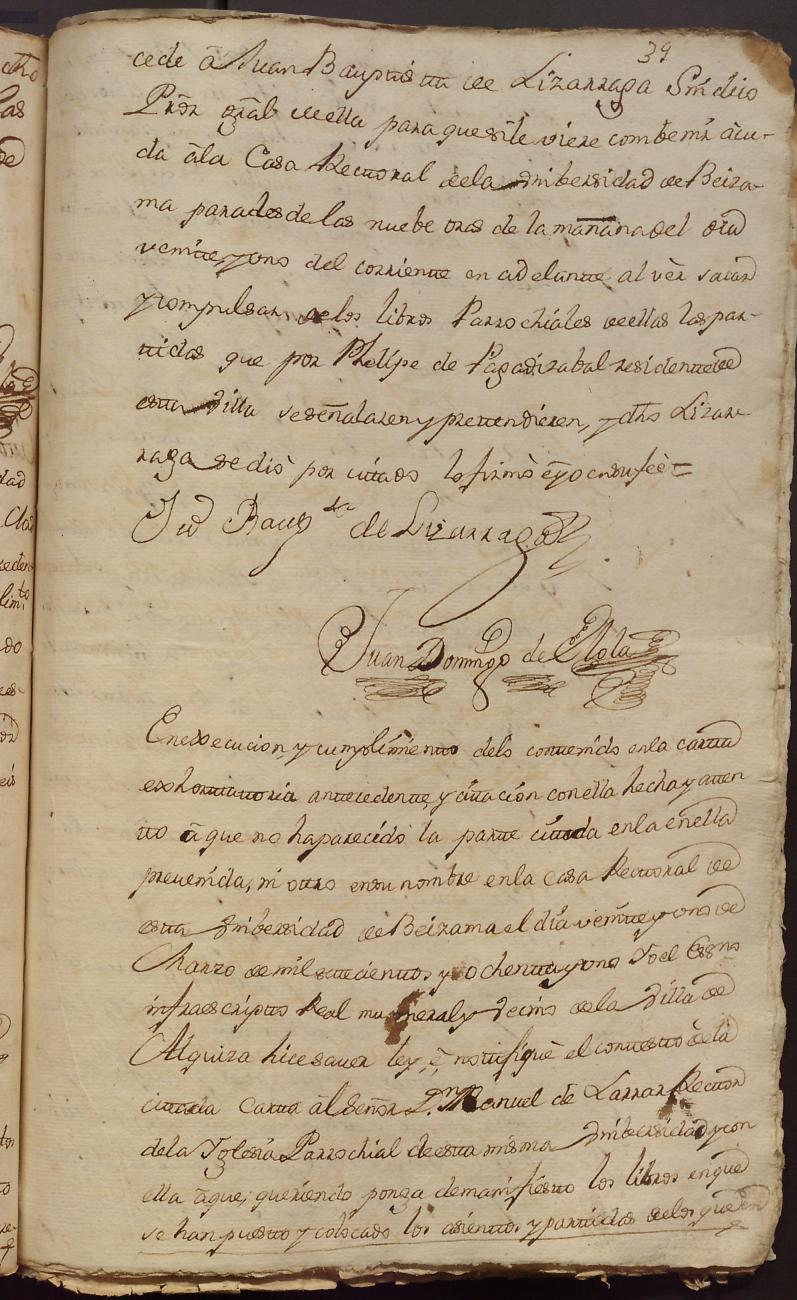 39
cede â Juan Bauptista de Lizarraga Sindico
Prōr grāl de ella para que si le viere combenir âcu-
da âla Casa Rectoral dela Unibersidad de Beiza-
ma para desde las nuebe oras de la mañana del dia
veinte y uno del corriente en adelante al vèr sacar
y compulsar de los libros Parrochiales de ellas las par-
tidas que por Phelipe de Pagadizabal residente de
esta Villa se señalaren y pretendieren, y dhō Lizar-
raga se diò por citado lo firmò è yo en su feè=
Jūn Baupta de Lizarraga
Juan Domingo de Elola
En execucion, y cumplimiento delo contenido enla carta
exhortatoria antecedente, y citación con ella hecha y atten
to â que no haparecido la parte citada enla en ella
prevenida, ni otro en su nombre en la casa Rectoral de
esta Unibersidad de Beizama el día veinte y uno de
Marzo de mil setecientos y ochenta y uno Yo el Essno
infraescripto Real numeral y vecino de la Villa de
Alquiza hice saver ley, è notifiquè el contexto de la
citada Carta âl Señor Dn Manuel de Larrar Rector
dela Yglesia Parrochial de esta misma Unibersidad y con
ella aque, queriendo ponga de manifiesto los libros en que
se han puesto y colocado los asientos, y partidas de los que en